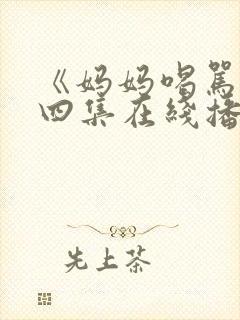 《妈妈喝骂
四集在线播
先上茶